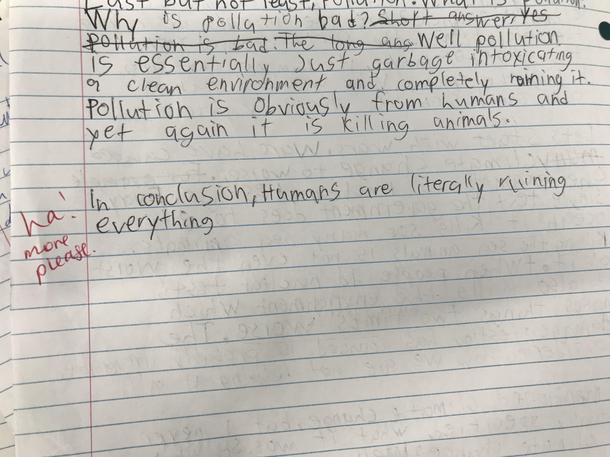 Last but not least, Pollution. What is Pollution.
Why is pollution bad? Short answer, Yes
Pollution is bad. The long ans Well pollution
is essentially Just garbage intoxicating
a clean environment and completely ruining it.
Pollution is Obviously from humans and
yet again it is killing animals.
In conclusion, Humans are literally ruining
everything
ha!
more
please.